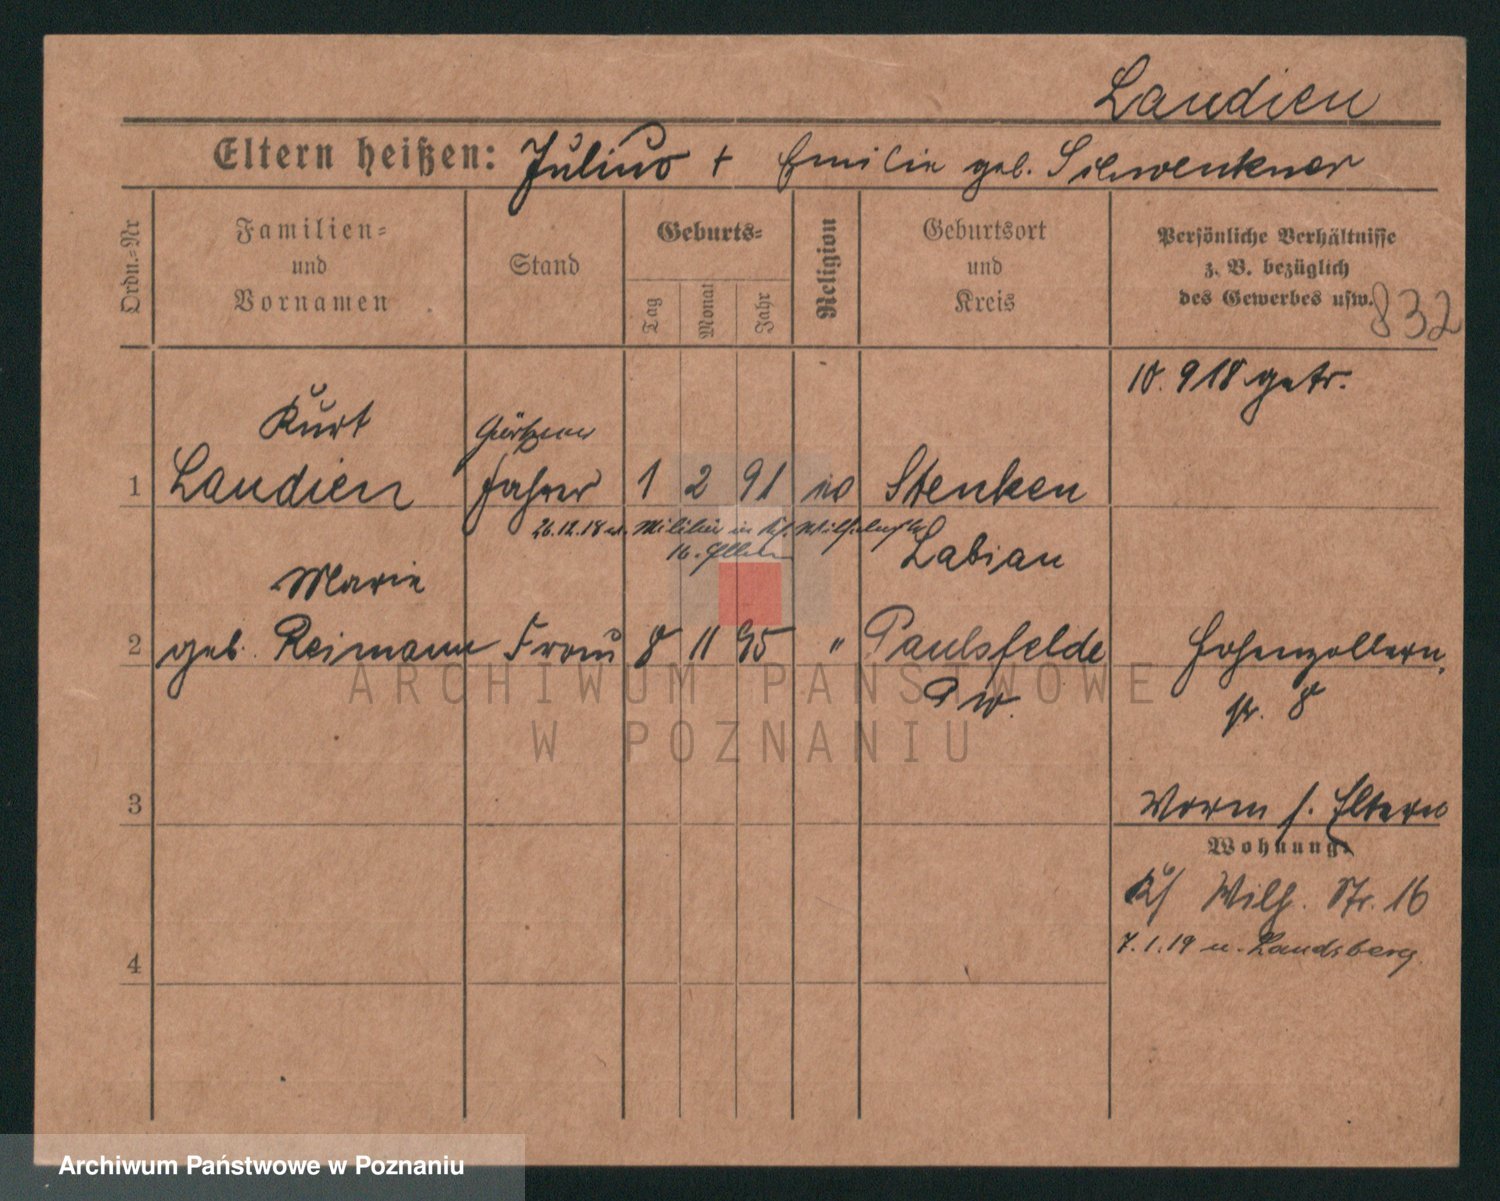 Laudien
Eltern heißen: Julius + Emilie geb. Schwenkner
Ordn.=Nr
Familien=
und
Vornamen
Stand
Geburts=
Tag
Monat
Jahr
Religion
Geburtsort
und
Kreis
Persönliche Verhältnisse
z. B. bezüglich
des Gewerbes usw.
832
10. 918 getr.
Kurt
1 Laudien 1 2 91 Stenken
26.12.18 v. Militär in
Labiau
Marie
2 geb. Reimann Frau 8 11 95 " Paulsfelde Hohenzollern
Pw. str. 8
3
Worm s. Eltern
Wohnung:
Wilh. Str. 16
7.1.19 n. Landsberg.
4
ARCHIWUM PAŃSTWOWE
W POZNANIU
Archiwum Państwowe w Poznaniu